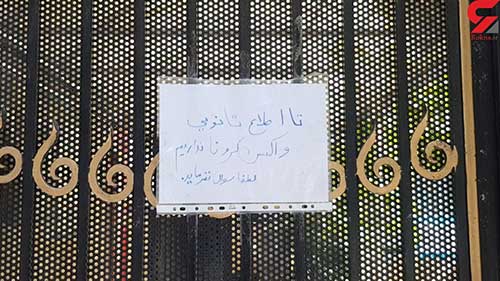 تا اطلاع ثانوبی
واکسن کرونا نداریم
لطفا سوال نفرمایید.
Rokna.ir